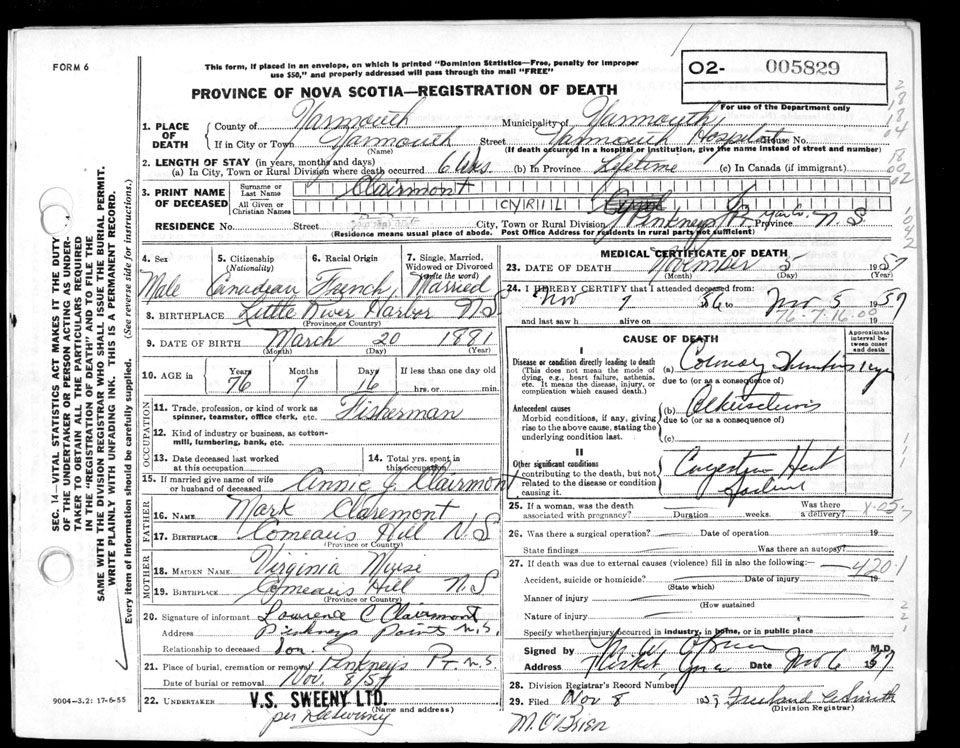 FORM 6
This form, if placed in an envelope, on which is printed "Dominion Statistics—Free, penalty for improper
use $50," and properly addressed will pass through the mail "FREE"
O2- 005829
PROVINCE OF NOVA SCOTIA—REGISTRATION OF DEATH
For use of the Department only
1. PLACE OF DEATH
County of Yarmouth Municipality of Yarmouth
If in City or Town Yarmouth Street Yarmouth Hospital House No.
(Name) (If death occurred in a hospital or institution, give the name instead of street and number)
2. LENGTH OF STAY (in years, months and days)
(a) In City, Town or Rural Division where death occurred 6 (b) In Province Lifetime (c) In Canada (if immigrant)
3. PRINT NAME OF DECEASED
Surname or Last Name Clairmont
All Given or Christian Names CYRIIL
RESIDENCE No. Street City, Town or Rural Division Pinkneys Pt. Yar Co. Province N.S.
(Residence means usual place of abode. Post Office Address for residents in rural parts not sufficient)
4. Sex Male
5. Citizenship (Nationality) Canadian
6. Racial Origin French
7. Single, Married, Widowed or Divorced (write the word) Married
8. BIRTHPLACE Little River Harbor N.S
(Province or Country)
9. DATE OF BIRTH March 20 1881
(Month) (Day) (Year)
10. AGE in Years 76 Months 7 Days 16 If less than one day old
hrs. or min.
OCCUPATION
11. Trade, profession, or kind of work as spinner, teamster, office clerk, etc. Fisherman
12. Kind of industry or business, as cotton-mill, lumbering, bank, etc.
13. Date deceased last worked at this occupation
14. Total yrs. spent in this occupation
15. If married give name of wife or husband of deceased Annie J. Clairmont
FATHER
16. Name Mark Claremont
17. Birthplace Comeau's Hill N.S
(Province or Country)
MOTHER
18. MAIDEN NAME Virginia Muise
19. BIRTHPLACE Comeaus Hill N.S
(Province or Country)
20. Signature of informant Lawrence C Clairmont
Address Pinkneys Point N.S.
Relationship to deceased Son.
21. Place of burial, cremation or removal Pinkney's Pt N.S
Date of burial or removal Nov. 8/57
22. UNDERTAKER V.S. SWEENY LTD.
(Name and address)
MEDICAL CERTIFICATE OF DEATH
23. DATE OF DEATH November 5 1957
(Month) (Day) (Year)
24. I HEREBY CERTIFY that I attended deceased from:
Nov 7 56 to Nov 5 1957
76-7-16-00
and last saw h alive on 19
CAUSE OF DEATH
Approximate interval between onset and death
I
Disease or condition directly leading to death
(This does not mean the mode of dying, e.g., heart failure, asthenia, etc. It means the disease, injury, or complication which caused death.)
(a) Coronary
due to (or as a consequence of)
Antecedent causes
Morbid conditions, if any, giving rise to the above cause, stating the underlying condition last.
(b)
due to (or as a consequence of)
(c)
II
Other significant conditions
contributing to the death, but not related to the disease or condition causing it.
Congestive Heart
Failure
25. If a woman, was the death associated with pregnancy? Duration weeks. Was there a delivery?
26. Was there a surgical operation? Date of operation 19
State findings Was there an autopsy?
27. If death was due to external causes (violence) fill in also the following:
420.1
Accident, suicide or homicide? Date of injury 19
(State which)
Manner of injury
(How sustained
Nature of injury
Specify whether injury occurred in industry, in home, or in public place
Signed by M.D.
Address Date Nov 6 1957
28. Division Registrar's Record Number
29. Filed Nov 8 1957
(Division Registrar)
M. O'BRIEN
9004—3.2: 17-6-55
SEC. 14—VITAL STATISTICS ACT MAKES IT THE DUTY
OF THE UNDERTAKER OR PERSON ACTING AS UNDER-
TAKER TO OBTAIN ALL THE PARTICULARS REQUIRED
IN THE "REGISTRATION OF DEATH" AND TO FILE THE
SAME WITH THE DIVISION REGISTRAR WHO SHALL ISSUE THE BURIAL PERMIT.
WRITE PLAINLY WITH UNFADING INK. THIS IS A PERMANENT RECORD.
Every item of information should be carefully supplied. (See reverse side for instructions.)